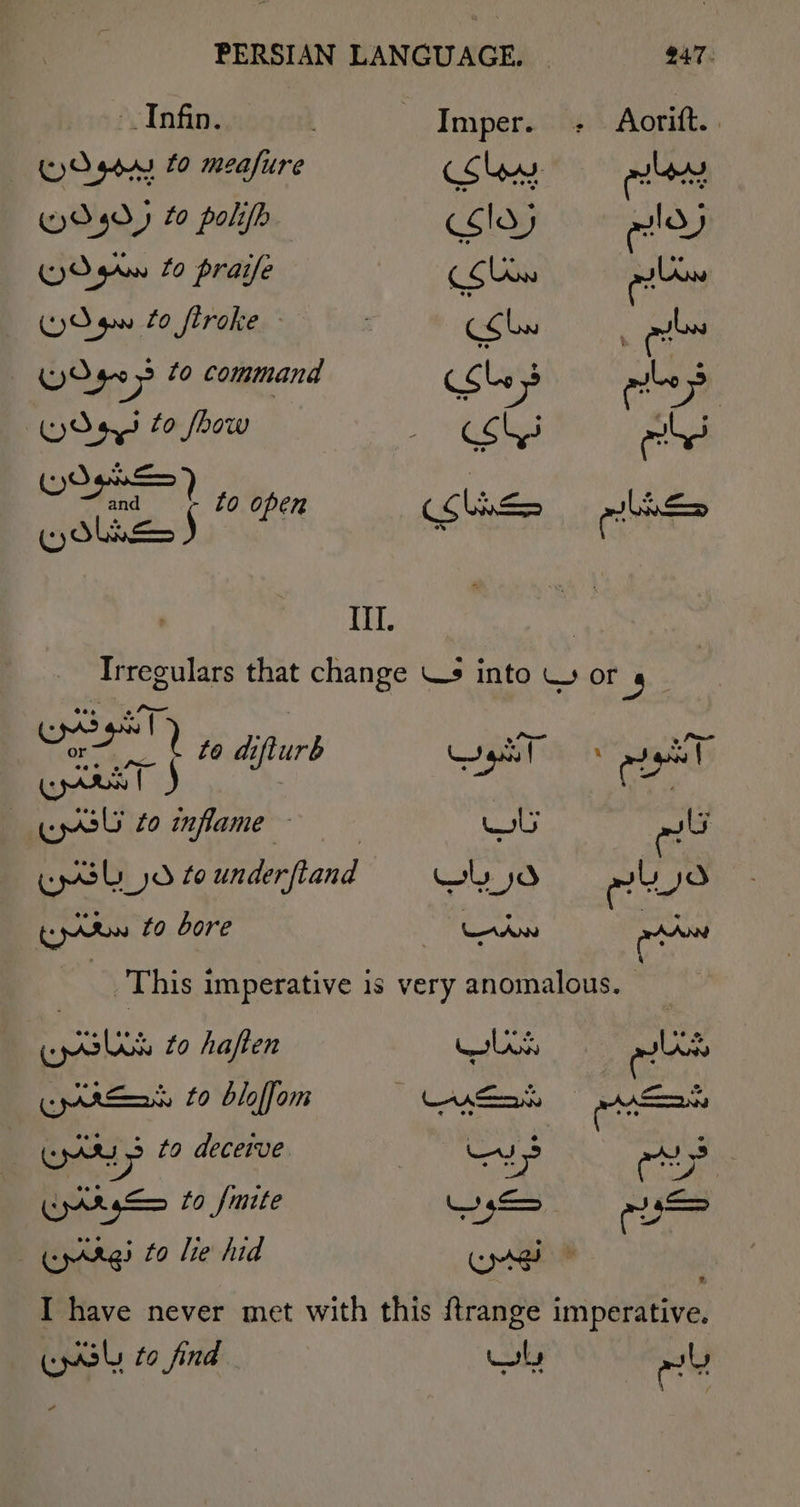 PERSIAN LANGUAGE. 247.
Infin. Imper. Aorift.
پیمودن to meafure پیمای پیمایم
زدودن to polifh زدای زدایم
ستودن to praife ستای ستایم
سودن to ftroke سای سایم
فرمودن to command فرمای فرمایم
نمودن to fhow نمای نمایم
کشودن and کشادن } to open کشای کشایم
III.
Irregulars that change ف into ب or و
آشوفتن or آشفتن } to difturb آشوب آشوبم
تافتن to inflame تاب تابم
دریافتن to underftand دریاب دریابم
سفتن to bore سنب سنبم
This imperative is very anomalous.
شتافتن to haften شتاب شتابم
شکفتن to bloffom شکیب شکیبم
فریفتن to deceive فریب فریبم
کوفتن to fmite کوب کوبم
نهفتن to lie hid نهبن
I have never met with this ftrange imperative.
یافتن to find یاب یابم